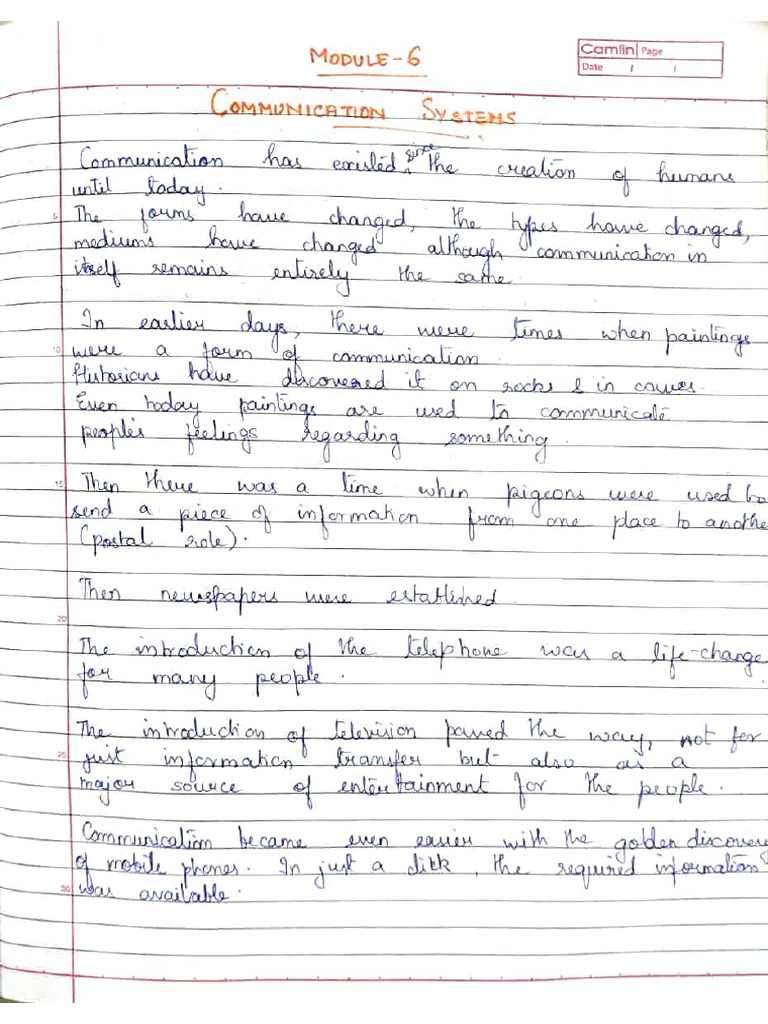 MODULE-6
Camlin Page
Date / /
COMMUNICATION SYSTEMS
Communication has existed since the creation of humans
until today.
5 The forms have changed, the types have changed,
mediums have changed although communication in
itself remains entirely the same.
In earlier days, there were times when paintings
10 were a form of communication.
Historians have discovered it on rocks & in caves.
Even today paintings are used to communicate
people's feelings regarding something.
15 Then there was a time when pigeons were used to
send a piece of information from one place to anothe
(postal role).
Then newspapers were established
20
The introduction of the telephone was a life-change
for many people.
The introduction of television paved the way, not for
25 just information transfer but also as a
major source of entertainment for the people.
Communication became even easier with the golden discovery
of mobile phones. In just a click, the required information
30 was available.